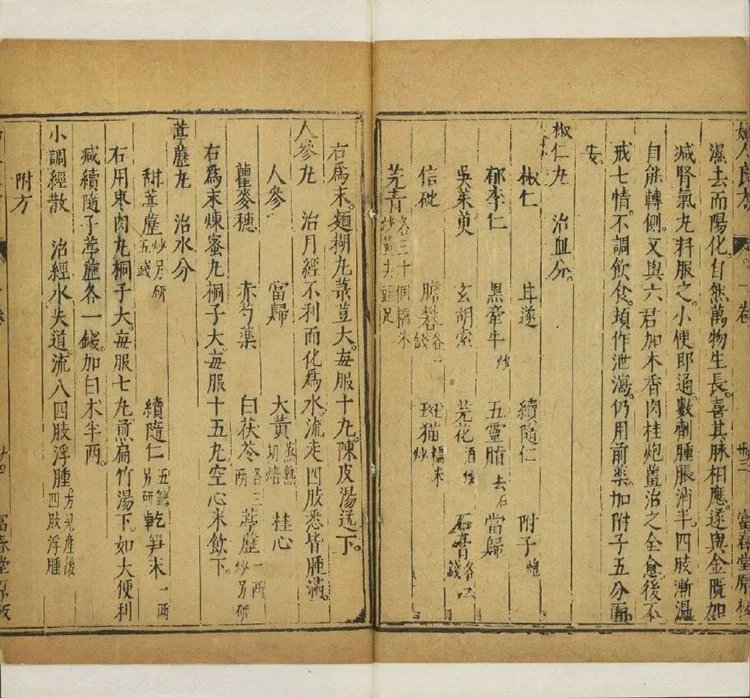 濕去而陽化自然萬物生長喜其脉相應遂與金匱加
減腎氣丸料服之小便即通數劑腫脹消半四肢漸溫
自能轉側又與六君加木香肉桂炮薑治之全愈後不
戒七情不調飲食頻作泄瀉仍用前藥加附子五分而
安
椒仁丸 治血分
椒仁 甘遂 續隨仁 附子炮
郁李仁 黑牽牛炒 五靈脂去石 當歸
吳茱萸 玄胡索 芫花酒炒 石膏各以錢
信砒 膽礬各一錢 斑猫糯米炒
芫青各三十個糯米炒黃去頭足
富春堂原板
右為末麵糊丸菉豆大每服十九陳皮湯送下
人參丸 治月經不利而化為水流走四肢悉皆腫滿
人參 當歸 大黃蒸熟切焙 桂心
瞿麥穗 赤芍藥 白茯苓各三兩 葶藶一兩炒另研
右為末煉蜜丸桐子大每服十五九空心米飲下
葶藶丸 治水分
甜葶藶炒另研五錢 續隨仁五錢另研 乾笋末一兩
右用棗肉丸桐子大每服七丸煎扁竹湯下如大便利
減續隨子葶藶各一錢加白术半兩
附方
小調經散 治經水失道流入四肢浮腫方見產後四肢浮腫
富春堂原板